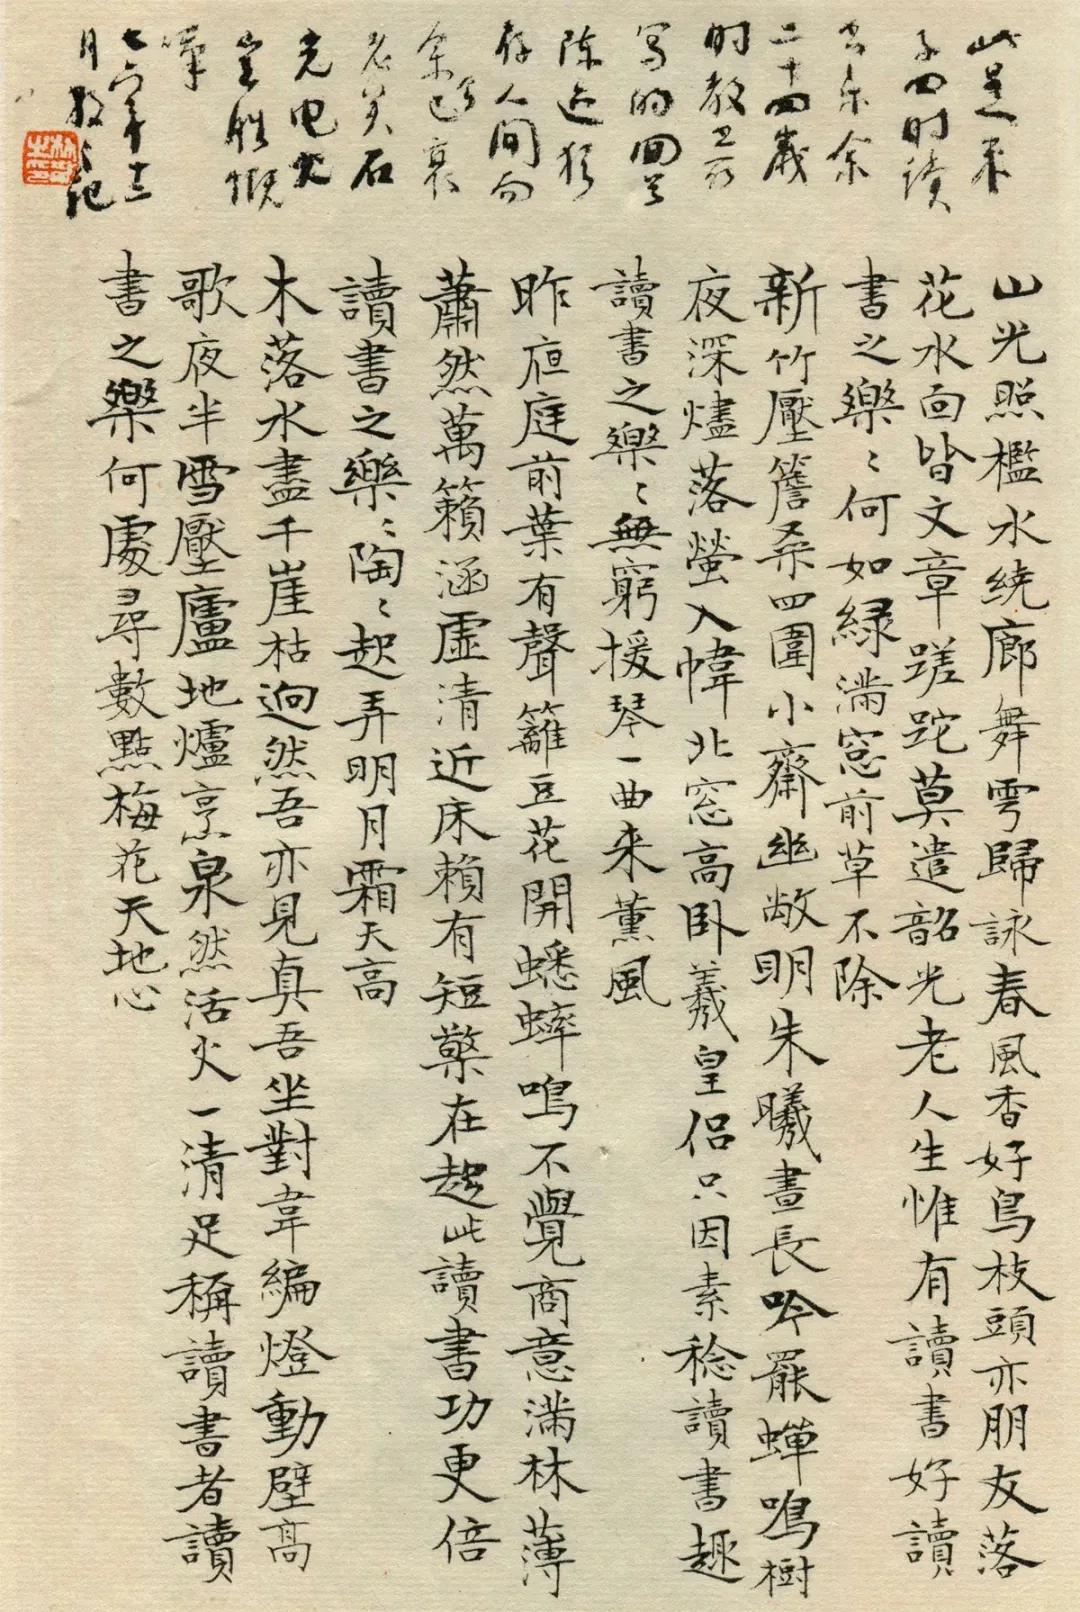 此是朱
子四时读
书乐余
二十四岁
时教
写的回首
陈迹犹
存人间而
余已衰
老矣石
光电火
岂胜慨
嘆
七六年十二
月散之记
山光照檻水繞廊舞雩歸詠春風香好鳥枝頭亦朋友落
花水面皆文章蹉跎莫遣韶光老人生惟有讀書好讀
書之樂〻何如緑滿窓前草不除
新竹壓簷桑四圍小齋幽敞明朱曦晝長吟罷蟬鳴樹
夜深燼落螢入幃北窓高臥羲皇侶只因素稔讀書趣
讀書之樂〻無窮援琴一曲来薰風
昨夜庭前葉有聲籬豆花開蟋蟀鳴不覺商意滿林薄
蕭然萬籟涵虛清近床賴有短檠在趂此讀書功更倍
讀書之樂〻陶〻起弄明月霜天高
木落水盡千崖枯迥然吾亦見真吾坐對韋編燈動壁高
歌夜半雪壓廬地爐烹泉然活火一清足稱讀書者讀
書之樂何處尋數點梅花天地心